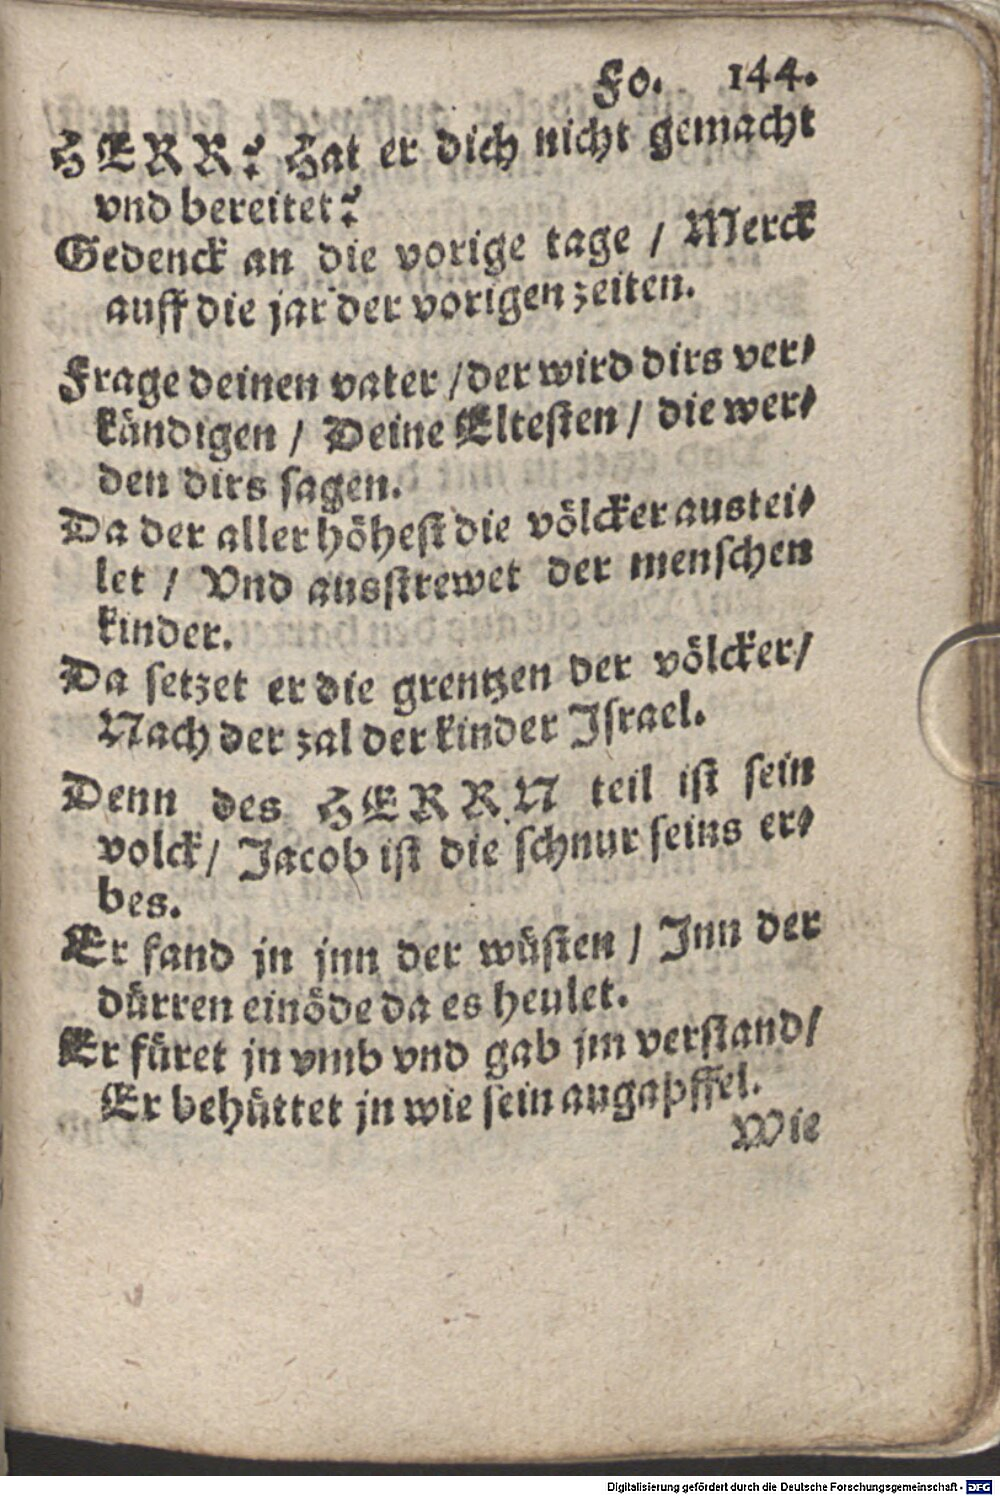 Fo. 144.
HERR? Hat er dich nicht gemacht
vnd bereitet?
Gedenck an die vorige tage / Merck
auff die jar der vorigen zeiten.
Frage deinen vater / der wird dirs ver⸗
kündigen / Deine Eltesten / die wer⸗
den dirs sagen.
Da der aller höhest die völcker austei⸗
let / Vnd ausstrewet der menschen
kinder.
Da setzet er die grentzen der völcker /
Nach der zal der kinder Israel.
Denn des HERRN teil ist sein
volck / Jacob ist die schnur seins er⸗
bes.
Er fand jn jnn der wüsten / Jnn der
dürren einöde da es heulet.
Er füret jn vmb vnd gab jm verstand /
Er behüttet jn wie sein augapffel.
Wie
Digitalisierung gefördert durch die Deutsche Forschungsgemeinschaft - DFG